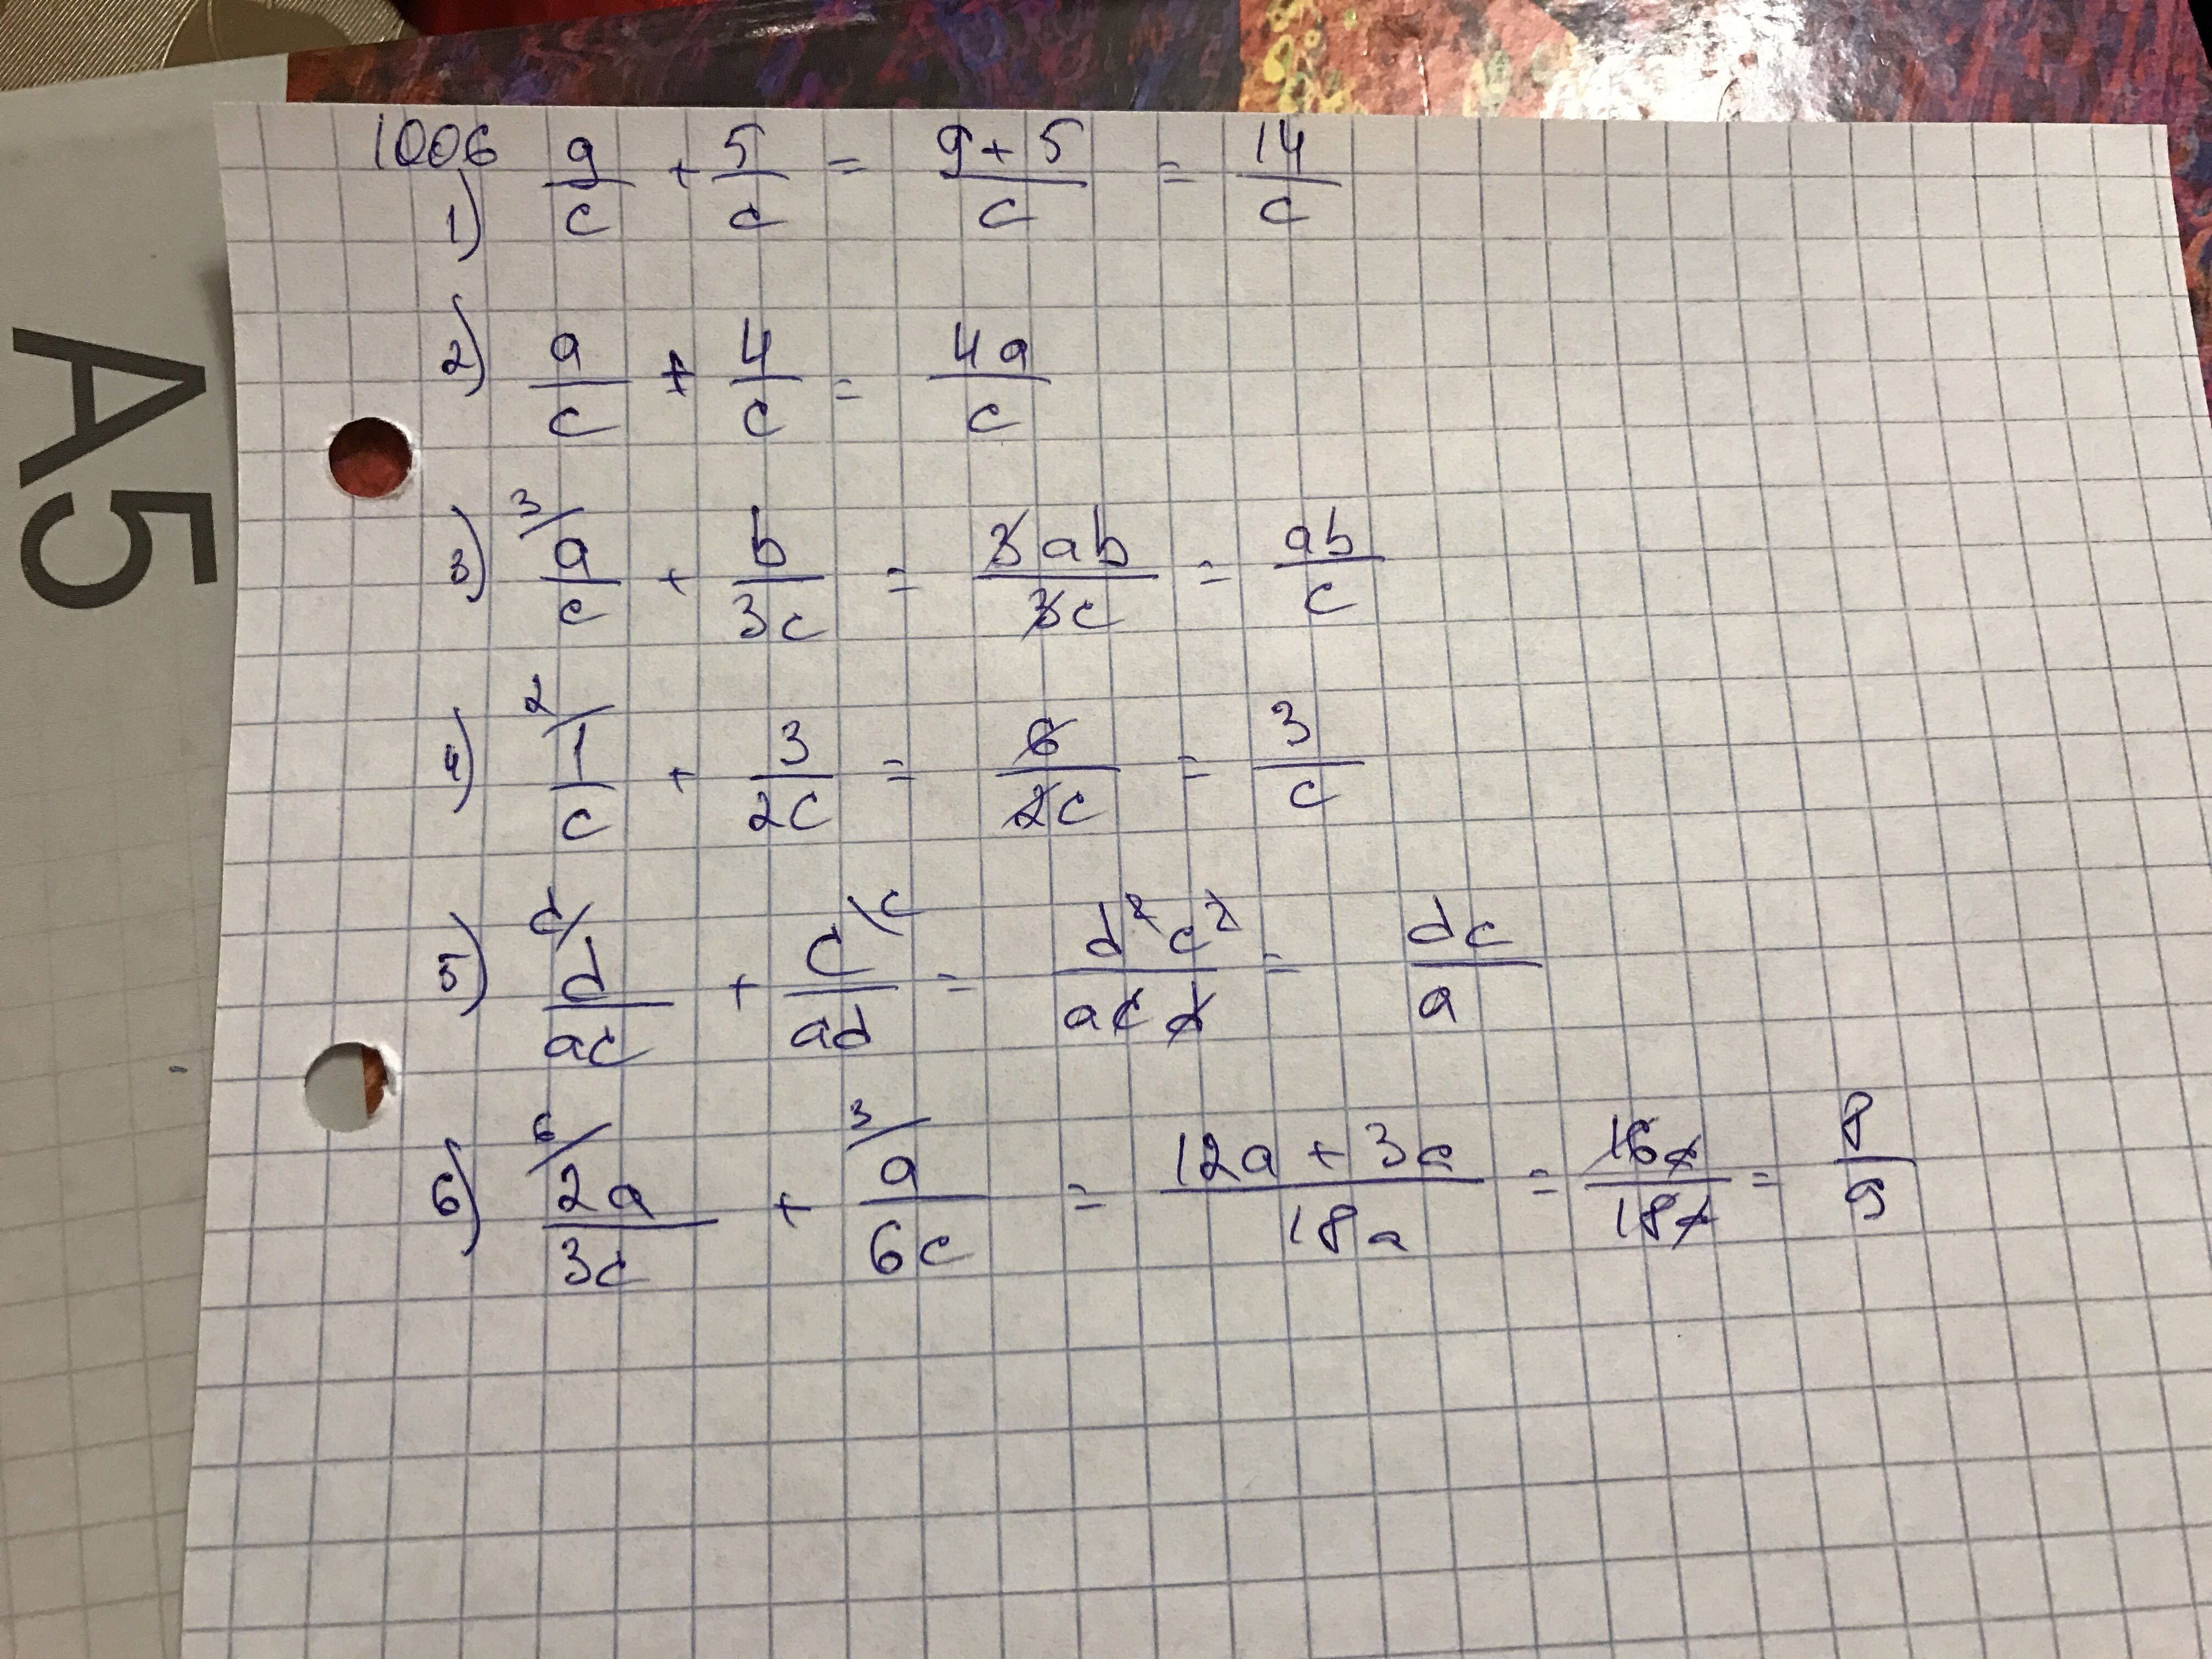 A5
1006
1) 9/c + 5/c = 9+5/c = 14/c
2) a/c + 4/c = 4a/c
3) 3/ a/c + b/3c = 3ab/3c = ab/c
4) 2/ 1/c + 3/2c = 6/2c = 3/c
5) d/ d/ac + c/ad \c = d²c²/acd = dc/a
6) 6/ 2a/3c + 3/ a/6c = 12a + 3a/18a = 16a/18a = 8/9